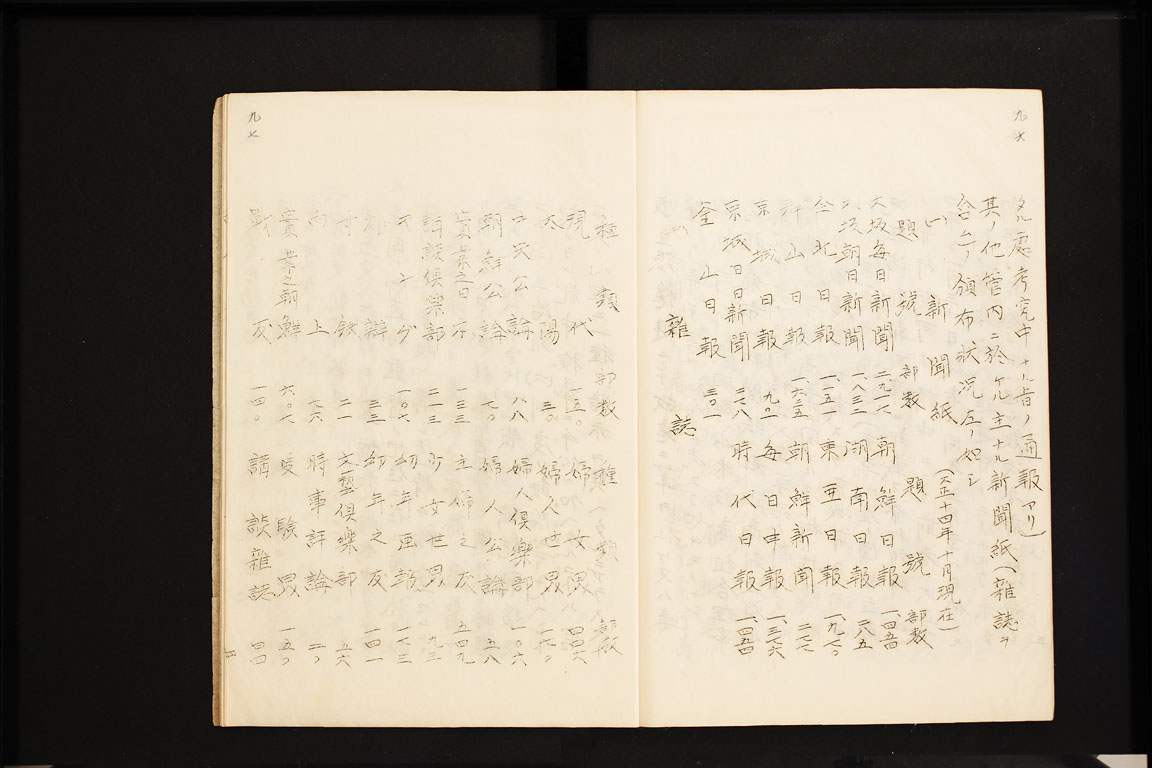 九六
タル處考究中ナル旨ノ通報アリ)
其ノ他管内ニ於ケル主ナル新聞紙(雜誌ヲ
含ム)ノ頒布狀況左ノ如シ
(一)新聞紙 (大正十四年十月現在)
題號 部數 題號 部數
大坂每日新聞 二、九一七 朝鮮日報 一四五四
大坂朝日新聞 一、八三二 湖南日報 二八五
全北日報 一、一五一 東亜日報 一、九七〇
群山日報 一、六三五 朝鮮新聞 二七七
京城日報 九〇一 每日申報 一、三七六
京城日日新聞 二七八 時代日報 一、四五四
釜山日報 三〇一
雜誌
九七
種類 部數 種類 部數
現代 一五〇 婦女界 四四六
太陽 三〇 婦人世界
中央公論 八八 婦人倶樂部 一〇六
朝鮮公論 七〇 婦人公論 五八
實業之日本 一三三 主婦之友 五四九
講談倶樂部 二一三 少女世界 九三
キング 一〇七 幼年画報 一七三
雄辯 三三 幼年之友 一四一
寸鉄 二一 文藝倶樂部 五六
向上 七六 時事評論 二〇
實業之朝鮮 六〇七 受驗界 一五〇
戰友 一四〇 講談雜誌 四四